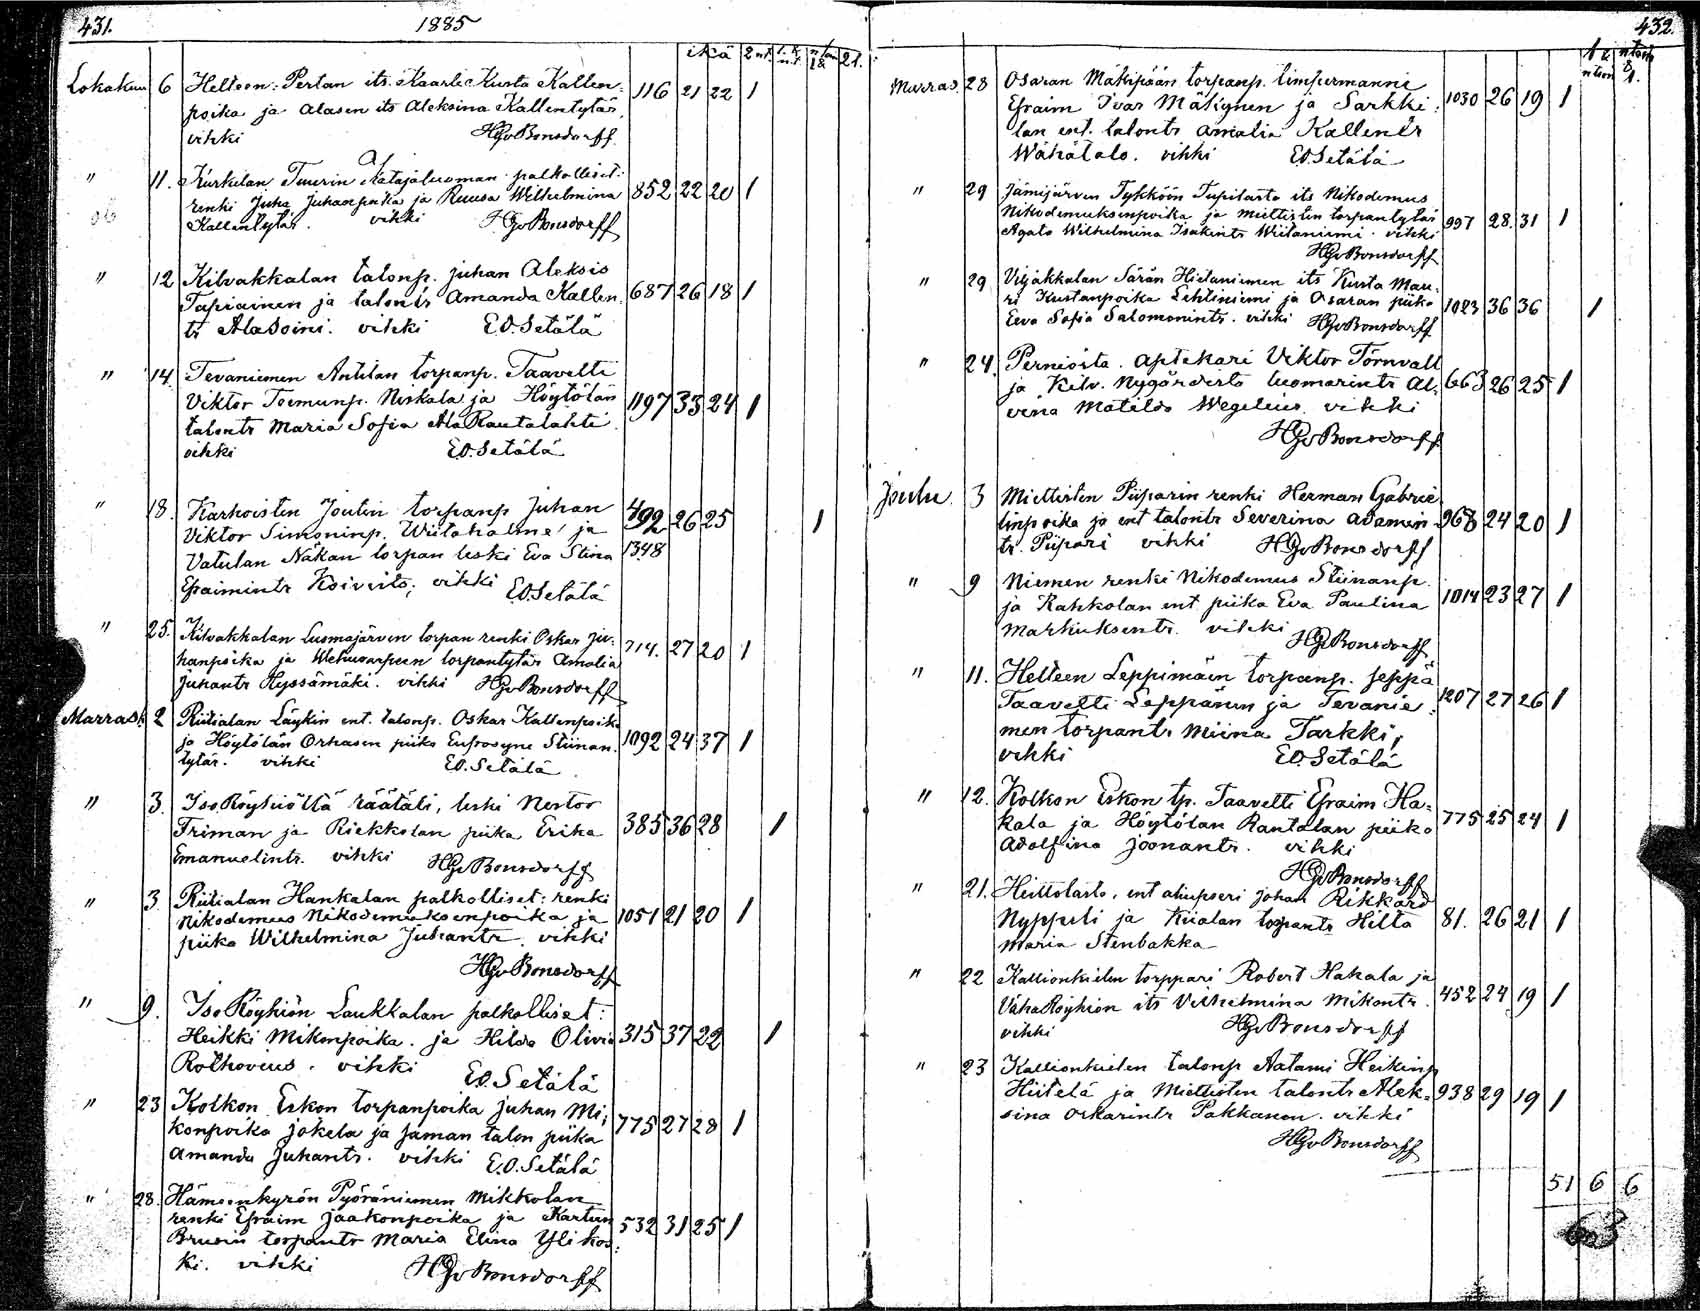 431. 1885
ikä 2 nt.
Lokakuu 6 Helteen: Pertan its. Kaarle Kusta Kallen-
poika ja Alasen its Aleksina Kallentytär, 116 21 22 1
vihki HGvBonsdorff
" 11. Kurkelan Tuurin Katajaluoman palkolliset:
renki Juha Juhanpoika ja Ruusa Wilhelmina 852 22 20 1
Kallentytär. vihki HGvBonsdorff
" 12 Kilvakkalan talonp. Juhan Aleksis
Tapiainen ja talontr Amanda Kallen- 687 26 18 1
tr AlaSoini. vihki E.O.Setälä
" 14. Tevaniemen Anttilan torpanp. Taavetti
Viktor Teemunp. Niskala ja Höytölän 1197 33 24 1
talontr Maria Sofia AlaRautalahti
vihki E.O.Setälä
" 18. Karhoisten Joutin torpanp Juhan 492 26 25 1
Viktor Simoninp. Wiitahalme ja
Vatulan Näkan torpan leski Eva Stina 1348
Efraimintr Koivisto; vihki E.O.Setälä
" 25. Kilvakkalan Luomajärven torpan renki Oskar Ju-
hanpoika ja Wehuvarpeen torpantytär Amalia 714. 27 20 1
Juhantr Hyssämäki. vihki HGvBonsdorff
Marrask. 2 Riitialan Läykin ent. talonp. Oskar Kallenpoika
ja Höytölän Orhasen piika Eufrosyne Stiinan- 1092 24 37 1
tytär. vihki E.O.Setälä
" 3. IsoRöyhiöltä räätäli, leski Nestor
Friman ja Riekkolan piika Erika 385 36 28 1
Emanuelintr. vihki HGvBonsdorff
" 3. Riitialan Hankalan palkolliset: renki
Nikodemus Nikodemuksenpoika ja 1051 21 20 1
piika Wilhelmina Juhantr. vihki
HGvBonsdorff
" 9. IsoRöyhiön Laukkalan palkolliset:
Heikki Mikonpoika. ja Hilda Olivia 315 37 22 1
Rothovius. vihki E.O.Setälä
" 23 Kolkon Eskon torpanpoika Juhan Mi-
konpoika Jokela ja Jaman talon piika 775 27 28 1
Amanda Juhantr. vihki E.O.Setälä
" 28. Hämeenkyrön Pyöräniemen Mikkolan
renki Efraim Jaakonpoika ja Karttun 532 31 25 1
Bruusin torpantr Maria Elina Ylikos-
ki. vihki HGvBonsdorff
432.
Marras. 28 Osaran Mäkipään torpanp. timpermanni
Efraim Ivar Mäkynen ja Sarkki- 1030 26 19 1
lan ent. talontr Amalia Kallentr
Wähätalo. vihki E.O.Setälä
" 29 Jämijärven Tykköön Tupilasta its Nikodemus
Nikodemuksenpoika ja Miettisten torpantytär 997 28. 31 1
Agata Wilhelmina Isakintr Wiitaniemi. vihki
HGvBonsdorff
" 29 Viljakkalan Särän Hietaniemen its Kusta Mau-
ri Kustanpoika Lehtiniemi ja Osaran piika 1023 36 36 1
Eeva Sofia Salomonintr. vihki HGvBonsdorff
" 24. Perniöstä. Aptekari Viktor Törnvall
ja Kilv. Nygårdista luomarintr Al- 663 26 25 1
vina Matilda Wegelius vihki
HGvBonsdorff
Joulu 3 Miettisten Piiparin renki Herman Gabrie-
linpoika ja ent talontr Severina Adamin- 968 24 20 1
tr. Piipari vihki HGvBonsdorff
" 9 Niemen renki Nikodemus Stiinanp.
ja Rahkolan ent piika Eva Paulina 1014 23 27 1
Markuksentr. vihki HGvBonsdorff
" 11. Helteen Leppimäen torpanp. seppä
Taavetti Leppänen ja Tevanie- 1207 27 26 1
men torpantr Miina Tarkki;
vihki E.O.Setälä
" 12. Kolkon Eskon tp. Taavetti Efraim Ha-
kala ja Höytölän Rantalan piika 775 25 24 1
Adolfina Joonantr. vihki
HGvBonsdorff
" 21. Heittolasta, ent aliupseri Johan Rikkard
Nyppeli ja Kiialan torpantr Hilta 81. 26 21 1
Maria Stenbakka
" 22 Kallionkielen torppari Robert Hakala ja
VähäRöyhiön its Vilhelmina Mikontr. 452 24 19 1
vihki HGvBonsdorff
" 23 Kallionkielen talonp Aatami Heikinp
Hiitelä ja Miettisten talontr Alek- 938 29 19 1
sina Oskarintr Pakkanen. vihki
HGvBonsdorff
51 6 6
63